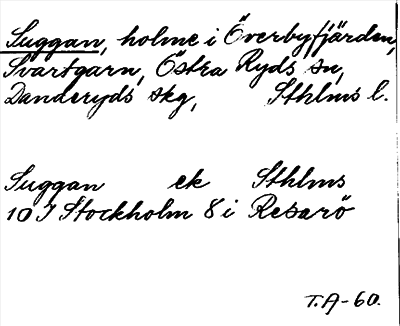 Suggan, holme i Överbyfjärden,
Svartgarn, Östra Ryds sn,
Danderyds skg, Sthlms l.
Suggan ek Sthlms
10 I Stockholm 8 i Resarö
T.A-60.